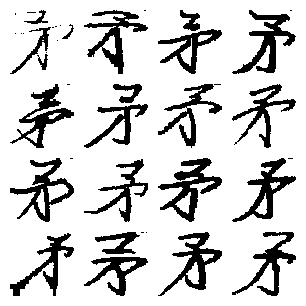 矛矛矛矛
矛矛矛矛
矛矛矛矛
矛矛矛矛